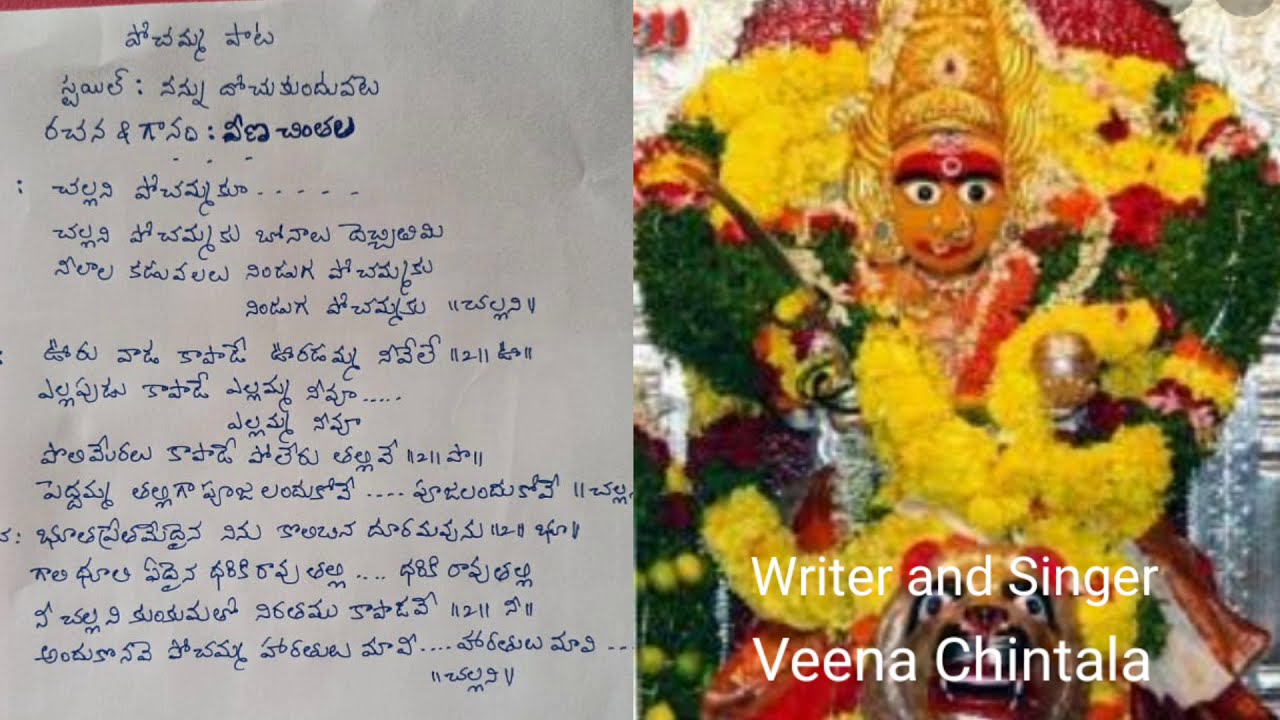 పోచమ్మ పాట
స్టయిల్ : నన్ను దోచుకుందువటె
రచన & గానం : వీణ చింతల
: చల్లని పోచమ్మకూ - - - - -
చల్లని పోచమ్మకు బోనాలు దెచ్చితిమి
నీలాల కడువలలు నిండుగ పోచమ్మకు
నిండుగ పోచమ్మకు ॥చల్లని॥
: ఊరు వాడ కాపాడే ఊరడమ్మ నీవేలే ॥2॥ ఊ॥
ఎల్లపుడు కాపాడే ఎల్లమ్మ నీవూ.....
ఎల్లమ్మ నీవూ
పొలిమేరలు కాపాడే పోలేరు తల్లివే ॥2॥ పొ॥
పెద్దమ్మ తల్లిగా పూజ లందుకోవే .... పూజలందుకోవే ॥చల్లని
చ: భూతప్రేతమేదైన నిను కొలిచిన దూరమవును ॥2॥ భూ॥
గాలి ధూళి ఏదైన ధరికి రావు తల్లి .... ధరికి రావు తల్లి
నీ చల్లని కుంకుమతో నిరతము కాపాడవే ॥2॥ నీ॥
అందుకొనవె పోచమ్మ హారతులు మావి....హారతులు మావి ---
॥చల్లని॥
Writer and Singer
Veena Chintala